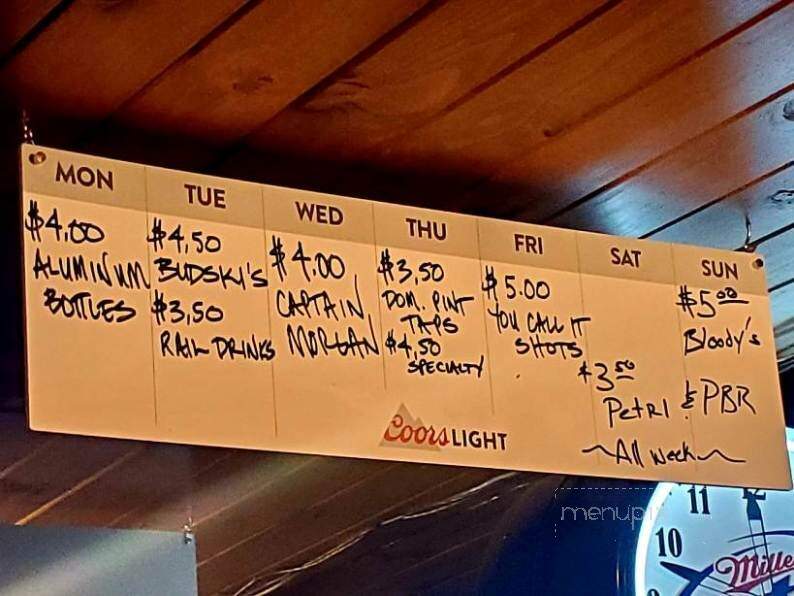 MON
$4.00
ALUMINUM
BOTTLES
TUE
$4.50
BUDSKI'S
$3.50
RAIL DRINKS
WED
$4.00
CAPTAIN
MORGAN
THU
$3.50
DOM. PINT
TAPS
$4.50
SPECIALTY
FRI
$5.00
YOU CALL IT
SHOTS
SAT
SUN
$5.00
Bloody's
$3.50
PetRI & PBR
~All week~
Coors LIGHT
menupi
11
12
10
Mille